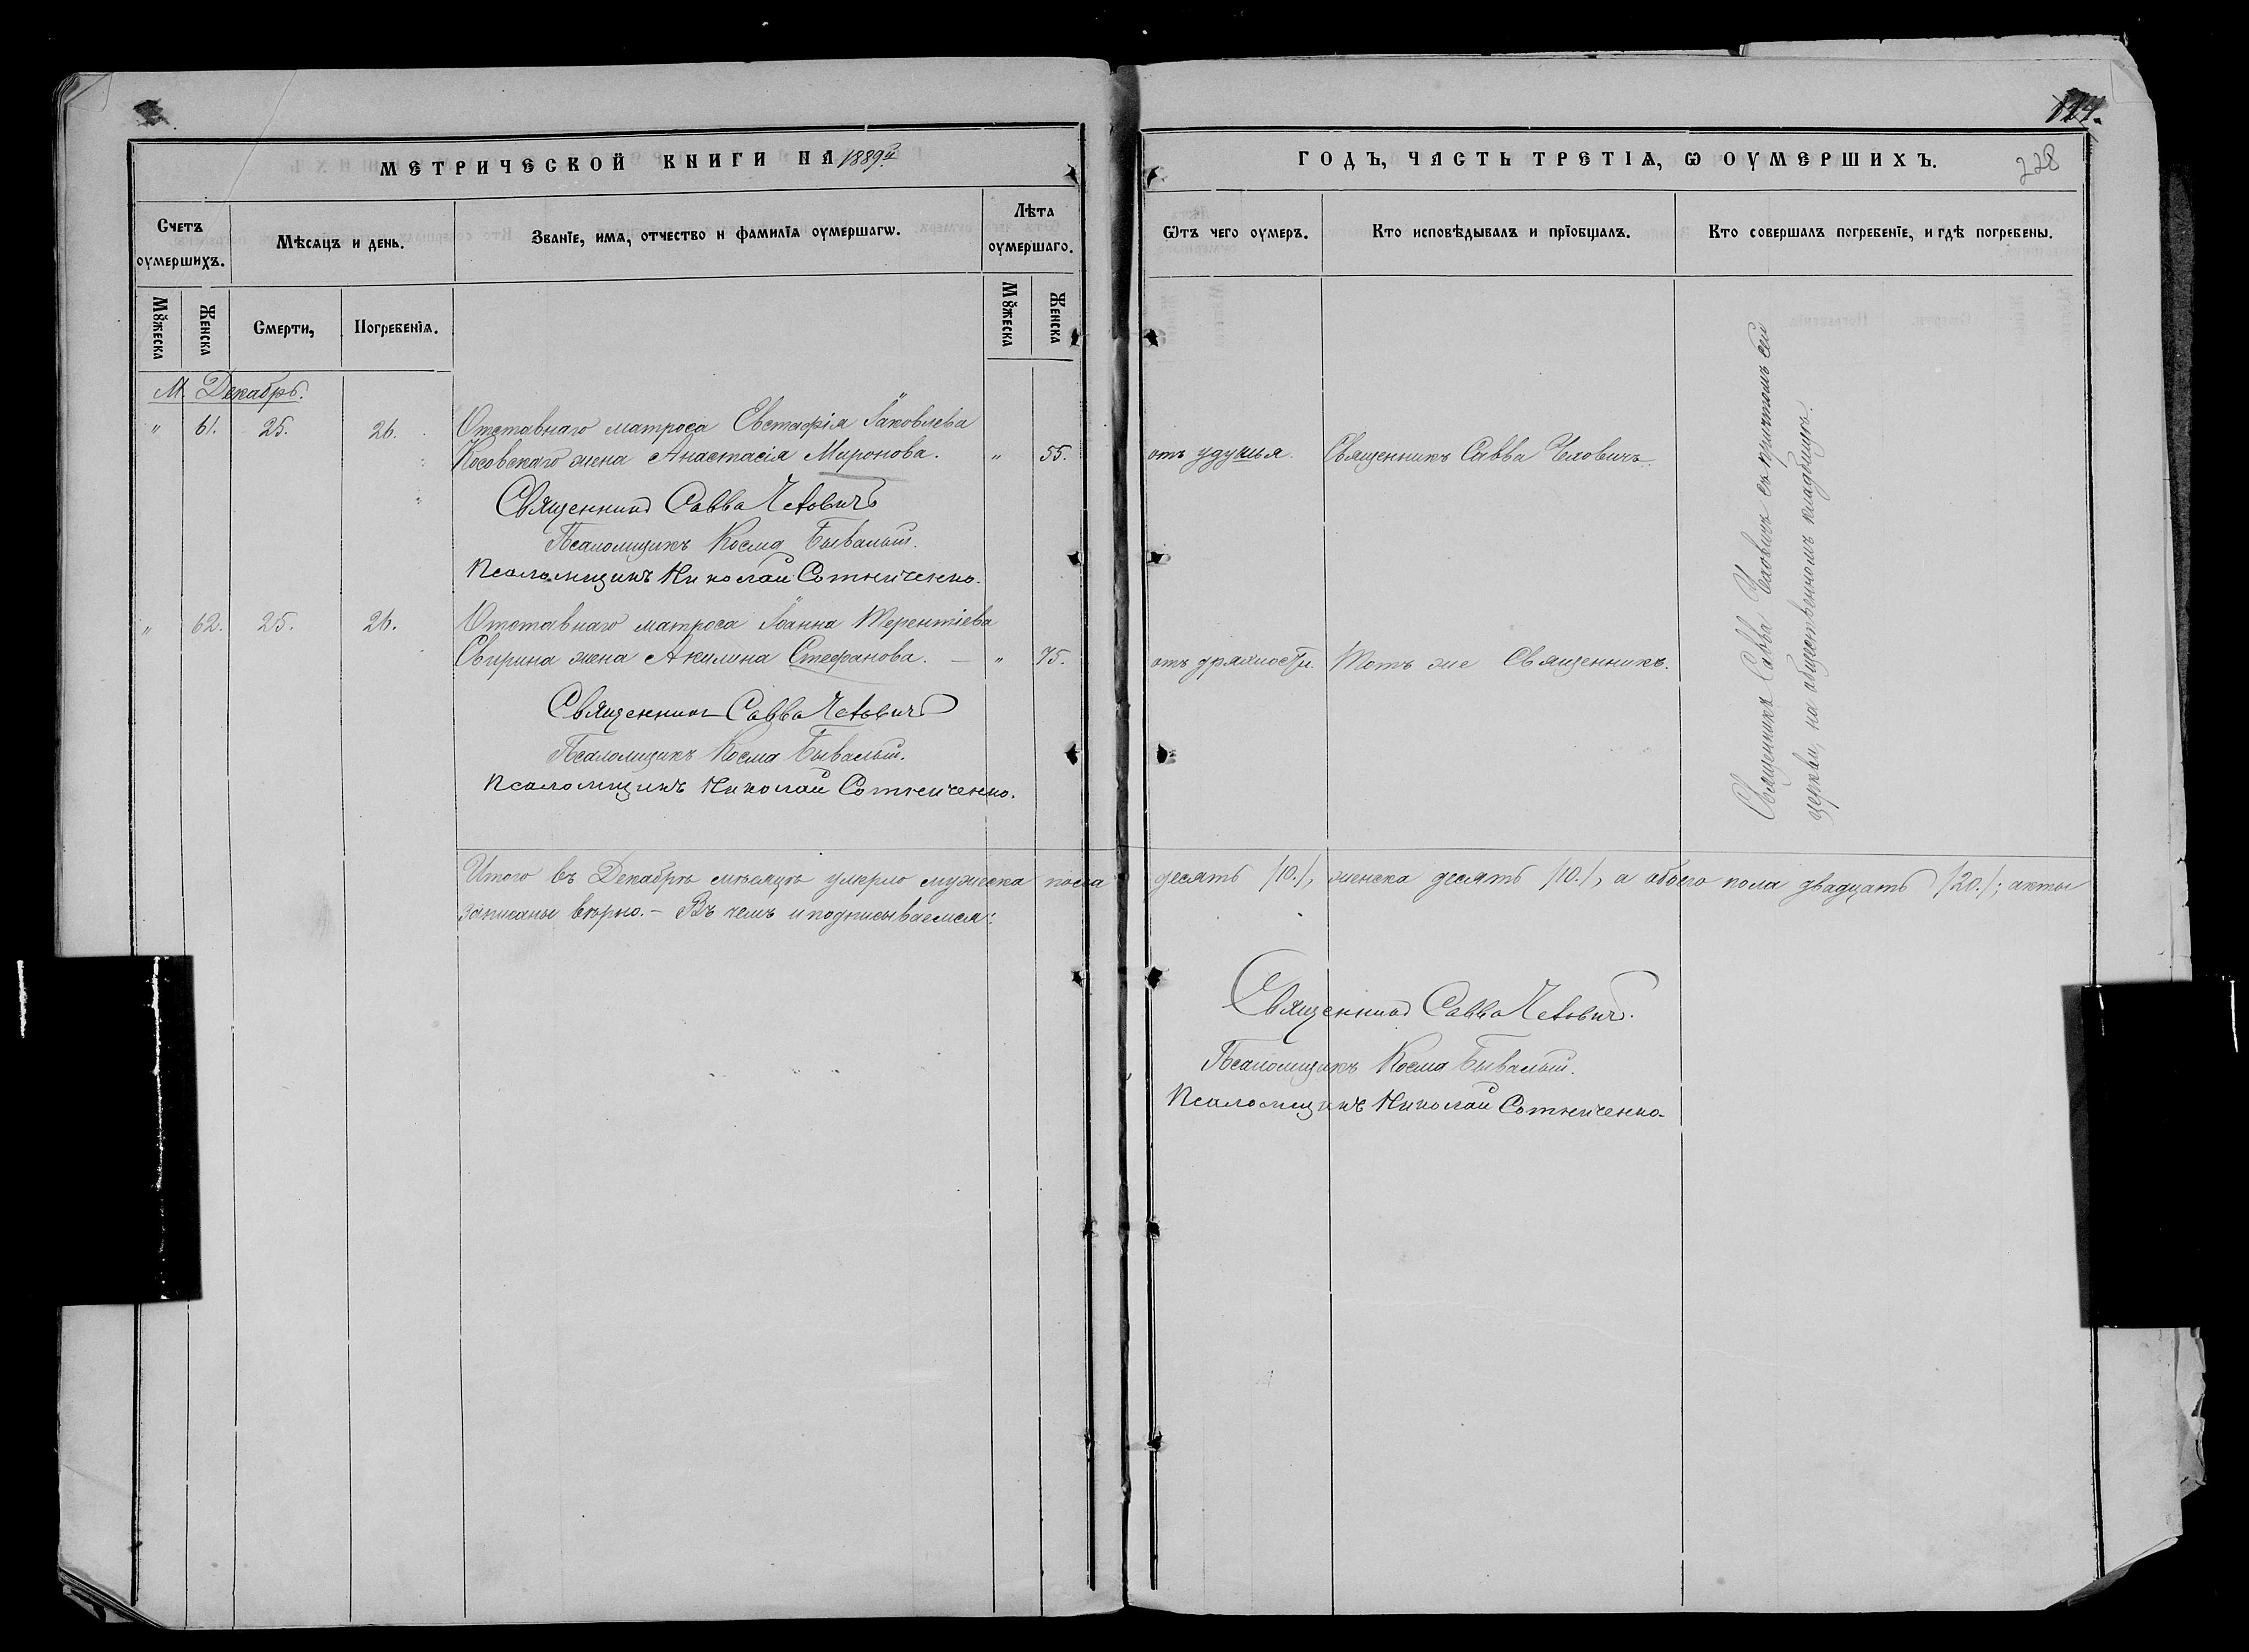 124.
МЕТРИЧЕСКОЙ КНИГИ НА 1889й
ГОДЪ, ЧАСТЬ ТРЕТІѦ, Ѡ ОУМЕРШИХЪ.
228
Счетъ оумершихъ.
Мѣсѧцъ и день.
Званїе, имѧ, отчество и фамилїѧ оумершагѡ.
Лѣта оумершаго.
Ѿтъ чего оумеръ.
Кто исповѣдывалъ и прїобщалъ.
Кто совершалъ погребенїе, и гдѣ погребены.
Мꙋжеска
Женска
Смерти,
Погребенїѧ.
Мꙋжеска
Женска
М. Декабрь.
" 61. 25. 26. Отставнаго матроса Евстафія Іаковлева
Косовскаго жена Анастасія Миронова. " 55. отъ удушья. Священникъ Савва Чехович
Священникъ Савва Чеховичъ
Псаломщикъ Косма Бывалый.
Псаломщикъ Николай Сотниченко.
" 62. 25. 26. Отставнаго матроса Іоанна Терентіева
Свирина жена Акилина Стефанова. — " 75. отъ дряхлости. Тотъ же Священникъ.
Священникъ Савва Чеховичъ
Псаломщикъ Косма Бывалый.
Псаломщикъ Николай Сотниченко.
Священникъ Савва Чеховичъ съ причтомъ сей
церкви, на общественномъ кладбищѣ.
Итого въ Декабрѣ мѣсяцѣ умерло мужеска пола десять /10./, женска десять /10./, а обоего пола двадцать /20./; акты
записаны вѣрно. – Въ чемъ и подписываемся:
Священникъ Савва Чеховичъ.
Псаломщикъ Косма Бывалый.
Псаломщикъ Николай Сотниченко.